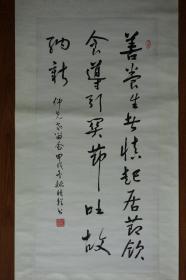 善养生者慎起居节饮
食导引关节吐故
纳新
仲兄留念甲戌